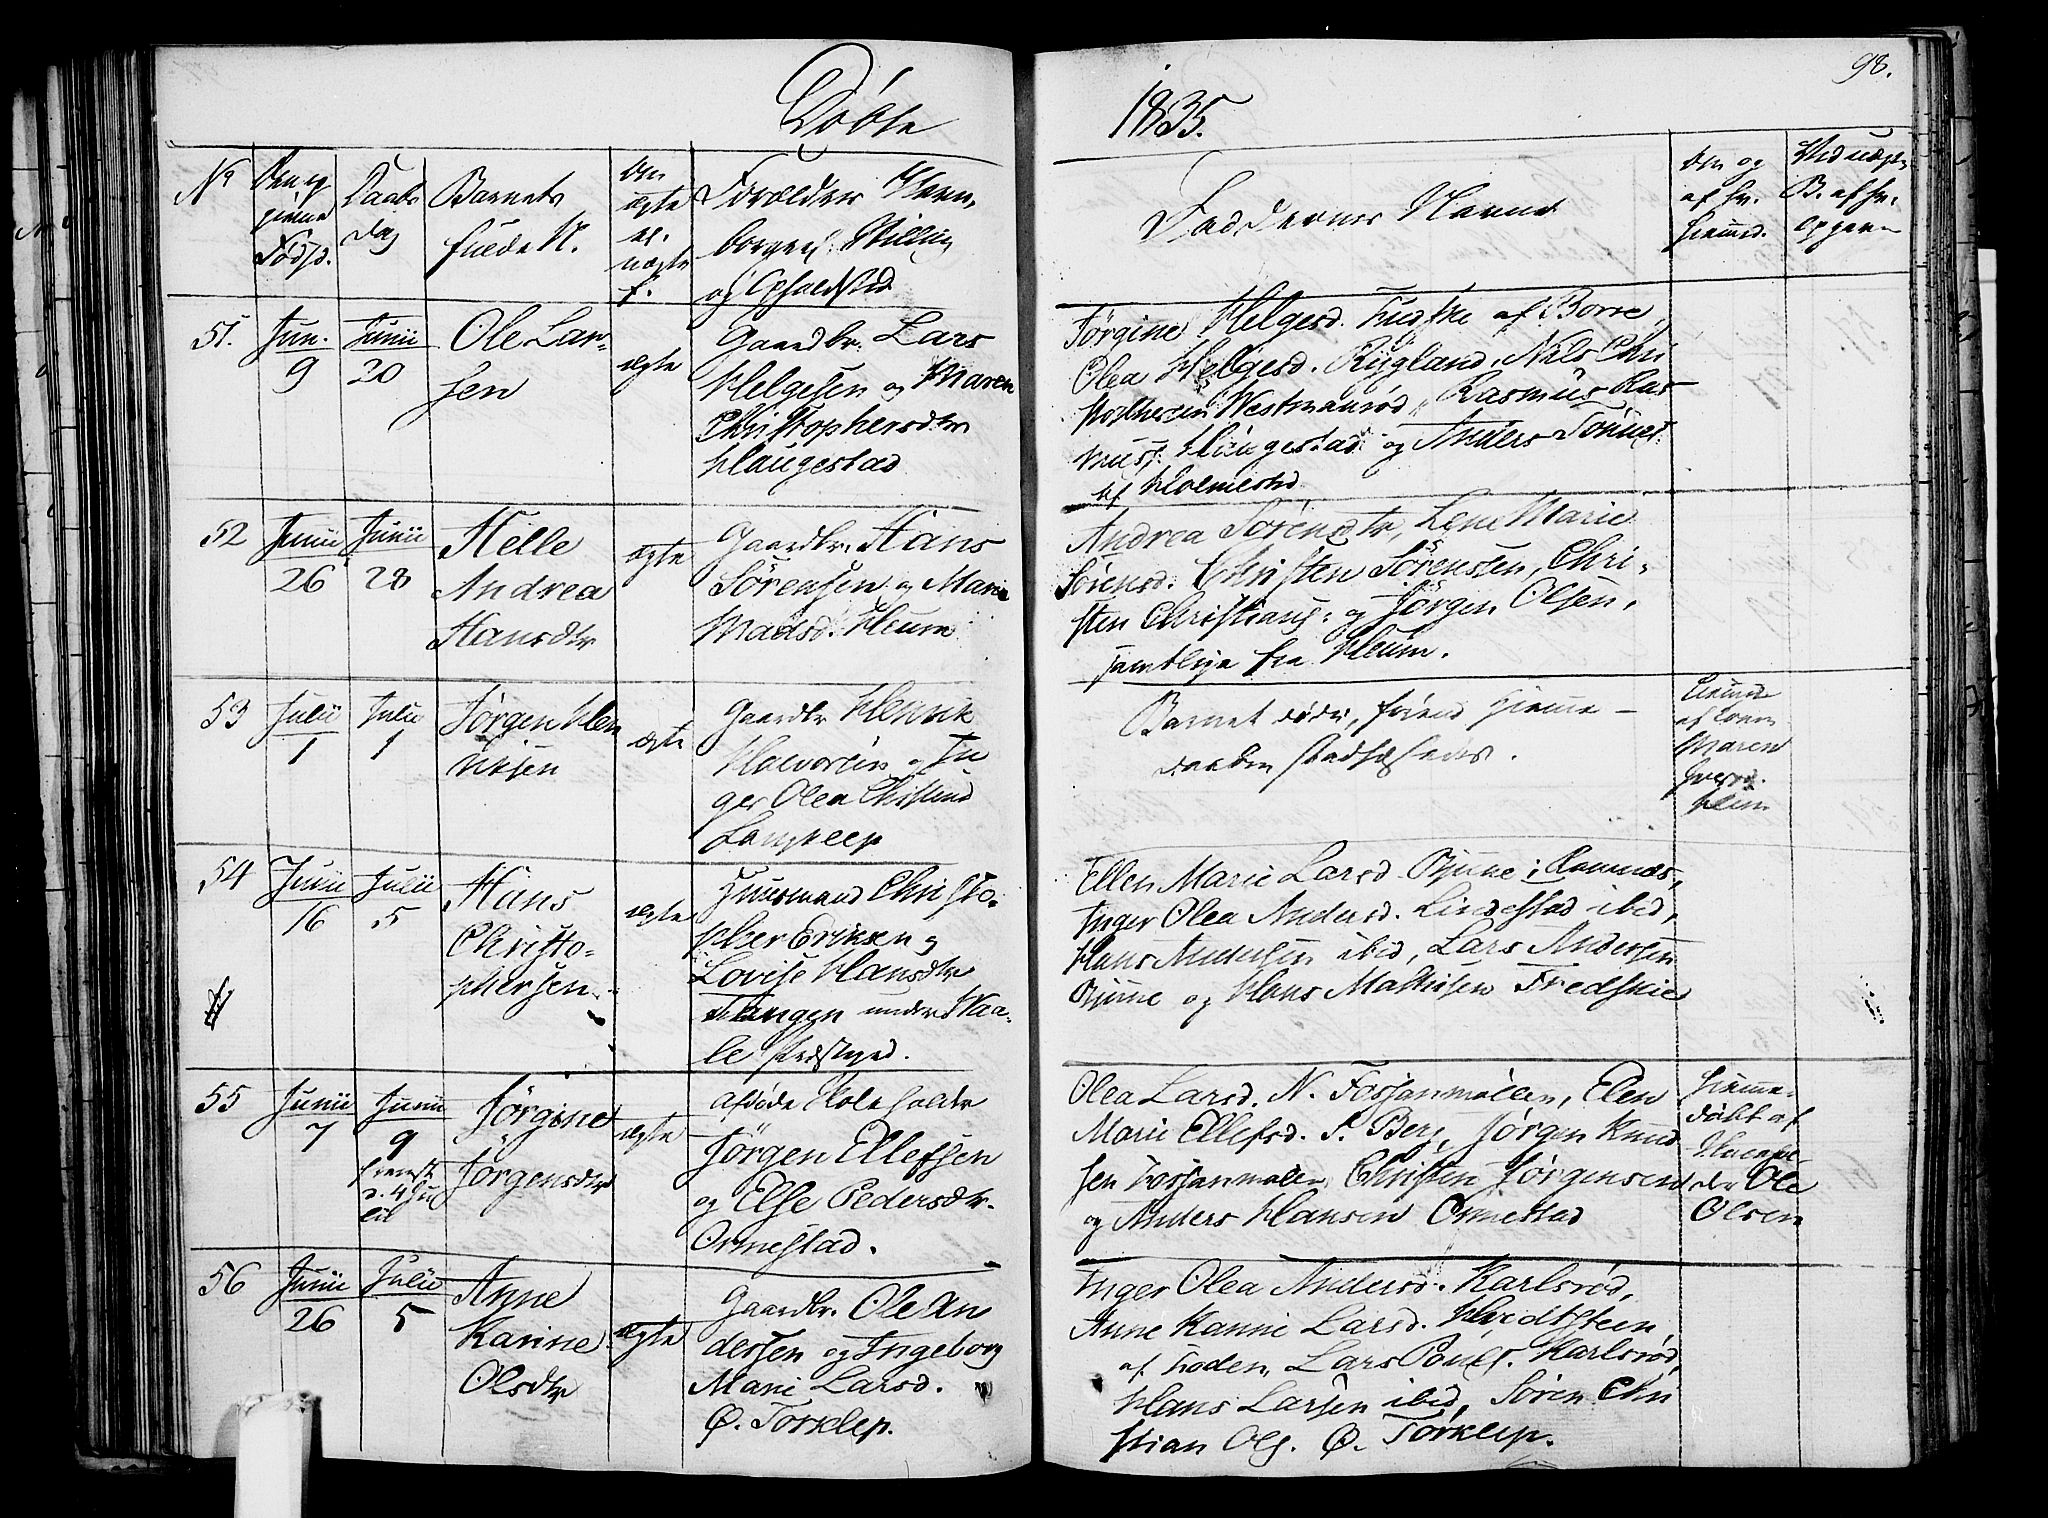 98.
Döbte
1835.
No
Døn og
Daabs
Barnets
Forældres Navn,
Faddernes Navne
Fødsd.
Dag
fulde N.
borgerl. Stilling
og Opholdsted
51.
Jun. 9
Junii 20
Ole Lar-
sen
ægte
Gaardbr. Lars
Helgesen og Maren
Christophersdtr
Haugestad
Jörgine Helgesd. af Borre,
Olea Helgesd. Rygland, Nils Chri
stophersen Westmansröd, Rasmus Ras-
Haugestad og Anders
af Holmestrd
52
Junii 26
Junii 28
Helle
Andrea
Hansdtr
ægte
Gaardbr. Hans
Sörensen og Maria
Madsd. Heum
Andrea Sörensdtr, Lene Marie
Sörensd. Christen Sörensen, Chri-
sten Christians: og Jörgen Olsen,
samtlige fra Heum.
53
Julii 1
Julii 1
Jörgen Hen
riksen
ægte
Gaardbr Henrik
Halvorsen og In
ger Olea Christensd
Langkleep
Barnet døde, førend Hjemme-
daaben stadfæstedes.
Hjemmed
af
Maren
Iversd.
Heum
54
Junii 16
Julii 5
Hans
Christo-
phersen
ægte
Huusmand Christo-
pher Eriksen og
Lovise Hansdtr
Tangen under Skaa-
le Præstegrd.
Ellen Marie Larsd Bjune i Ramnæs,
Inger Olea Andersd. Lindestad ibid,
Hans Andersen ibid, Lars Andersen
Bjune og Hans Mathisen Fredskie
55
Junii 7
Junii 9
fremst.
d. 4 Ju
lii
Jörgine
Jörgensdtr
ægte
afdöde Skoleholder
Jörgen Ellefsen
og Else Pedersdtr.
Ormestad.
Olea Larsd. N. Fossanmöllen, Elen
Marie Ellefsd. S. Berg, Jörgen Knud
sen Fossanmölen, Christen Jörgensen
og Anders Hansen Ormestad
Hjemme-
döbt af
Ole
Olsen
56
Junii 26
Julii 5
Anne
Karine
Olsdtr
ægte
Gaardbr. Ole An
dersen og Ingeborg
Marie Larsd.
Ø. Torklep.
Inger Olea Andersd. Karlsröd,
Anne Karine Larsd. Hvidtsteen
af Boden, Lars Poulsf. Karlsröd,
Hans Larsen ibid, Sören Chri
stian Ols. Ø. Torklep.